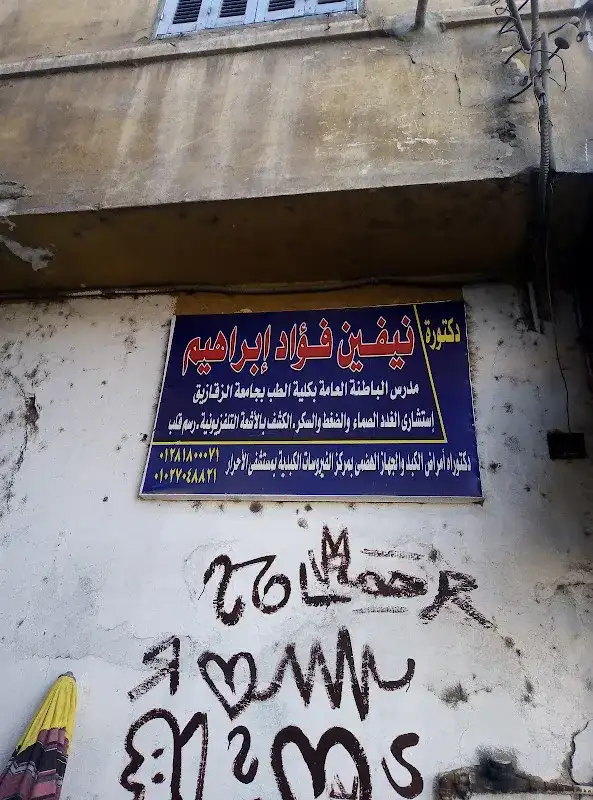 دكتورة
نيفين فؤاد إبراهيم
مدرس الباطنة العامة بكلية الطب بجامعة الزقازيق
إستشارى الغدد الصماء والضغط والسكر.الكشف بالأشعة التلفزيونية.رسم قلب
دكتوراه أمراض الكبد والجهاز الهضمى بمركز الفيروسات الكبدية بمستشفى الأحرار
٠١٢٨١٨٠٠٠٧١
٠١٠٢٧٠٤٨٨٢١